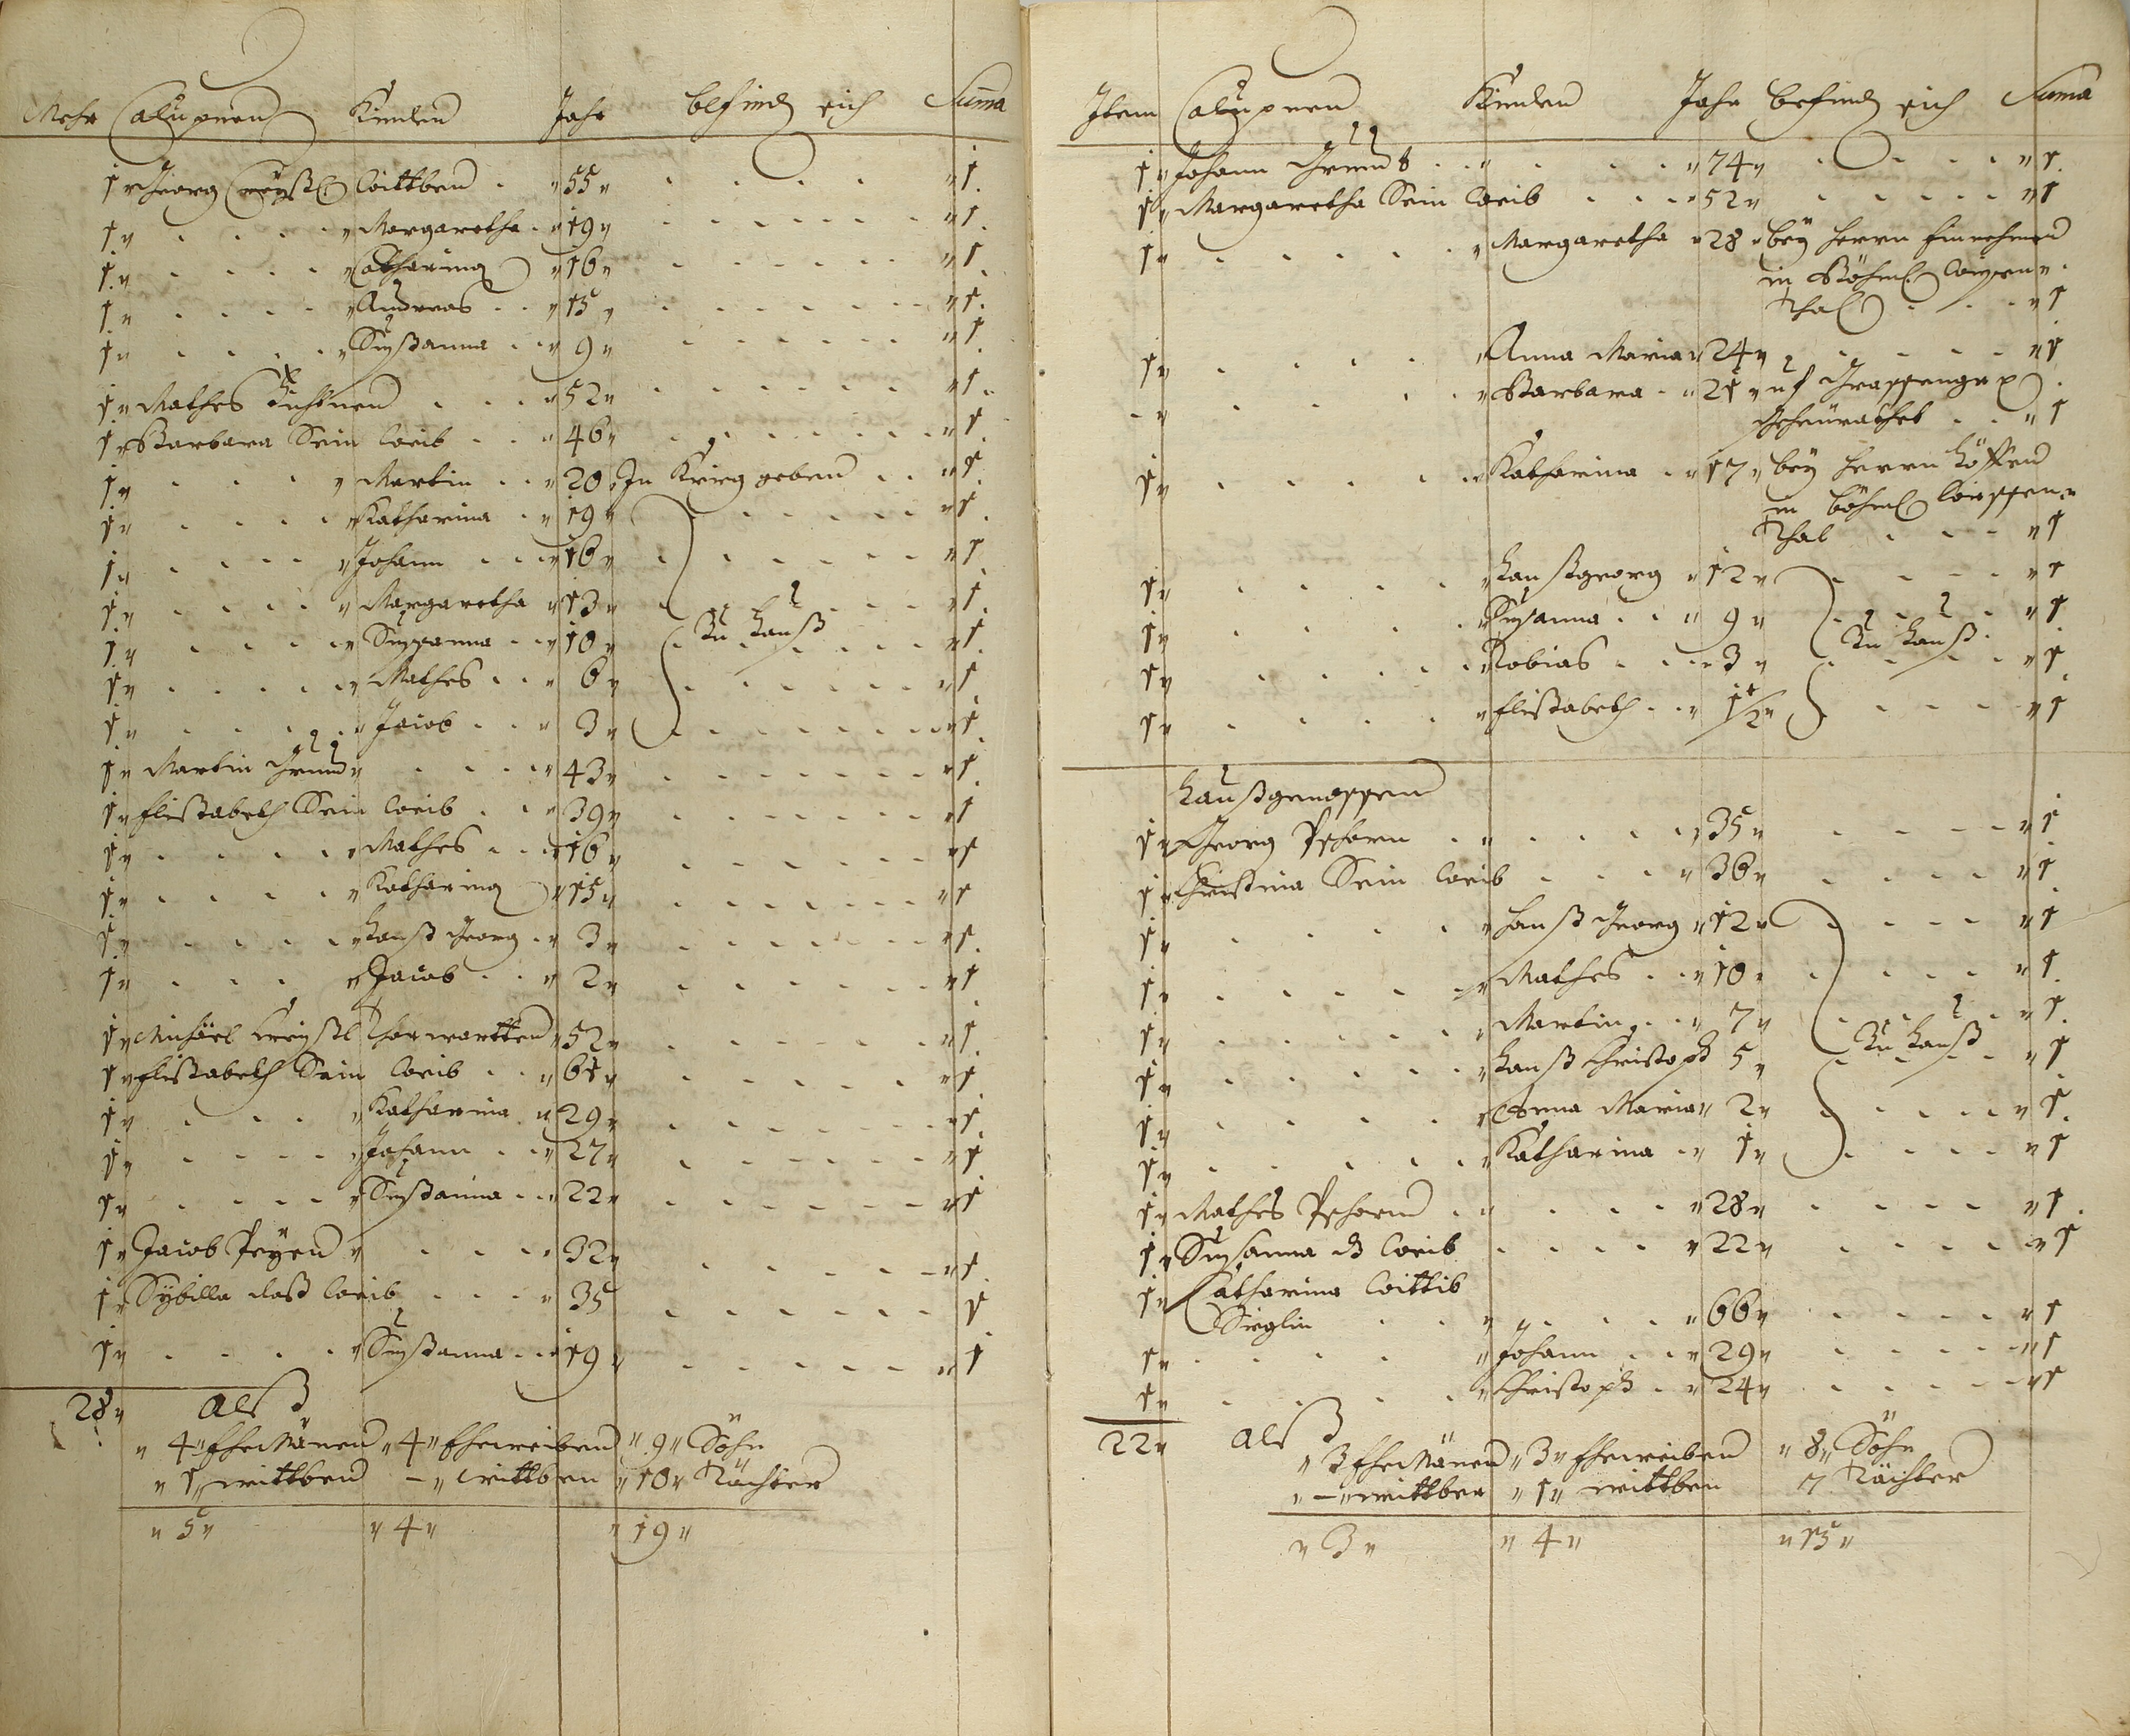 Mehr Calupner Kinder Jahr befind sich Suma
1 Georg Wittber 55 1
1 Margaretha 19 1
1 Catharina 16 1
1 Andreas 15 1
1 Sußanna 9 1
1 Mathes 52 1
1 Barbara Sein Weib 46 1
1 Martin 20 In Krieg geben 1
1 Katharina 19 1
1 Johann 16 1
1 Margaretha 13 1
1 Sussanna 10 Zu Hauß 1
1 Mathes 6 1
1 Jacob 3 1
1 Martin Grund 43 1
1 Elißabeth Sein Weib 39 1
1 Mathes 16 1
1 Katharina 15 1
1 Hanß Georg 3 1
1 Jacob 2 1
1 Michäel 52 1
1 Elißabeth Sein Weib 61 1
1 Katharina 29 1
1 Johann 27 1
1 Sußanna 22 1
1 Jacob 32 1
1 Sybilla deß Weib 35 1
1 Sußanna 19 1
28 alß
4 EheMäner 4 Eheweiber 9 Söhn
1 wittber – wittben 10 Tächter
5 4 19
Item Calupner Kinder Jahr befind sich Suma
1 Johann Grundt 74 1
1 Margaretha Sein Weib 52 1
1 Margaretha 28 bey Herrn Einnehmer
in Böhm. Wiesen
Thal 1
1 Anna Maria 24 1
– Barbara 21 uf
Geheürathet 1
1 Katharina 17 bey Herrn
in böhm Wiessen
Thal 1
1 Hanßgeorg 12 1
1 Susanna 9 Zu Hauß 1
1 Tobias 3 1
1 Elißabeth 1/2 1
Haußgenossen
1 Georg 35 1
1 Christina Sein Weib 36 1
1 Hanß Georg 12 1
1 Mathes 10 1
1 Martin 7 1
1 Hanß Christoph 5 Zu Hauß 1
1 Anna Maria 2 1
1 Katharina 1 1
1 Mathes 28 1
1 Susanna d Weib 22 1
1 Catharina Wittib
Sieglin 66 1
1 Johann 29 1
1 Christoph 24 1
22 alß
3 EheMäner 3 Eheweiber 8 Söhn
– wittber 1 wittben 7 Tächter
3 4 15